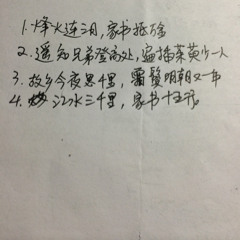 1.烽火连三月,家书抵万金
2.遥知兄弟登高处,遍插茱萸少一人
3.故乡今夜思千里,霜鬓明朝又一年
4.江水三千里,家书十五行